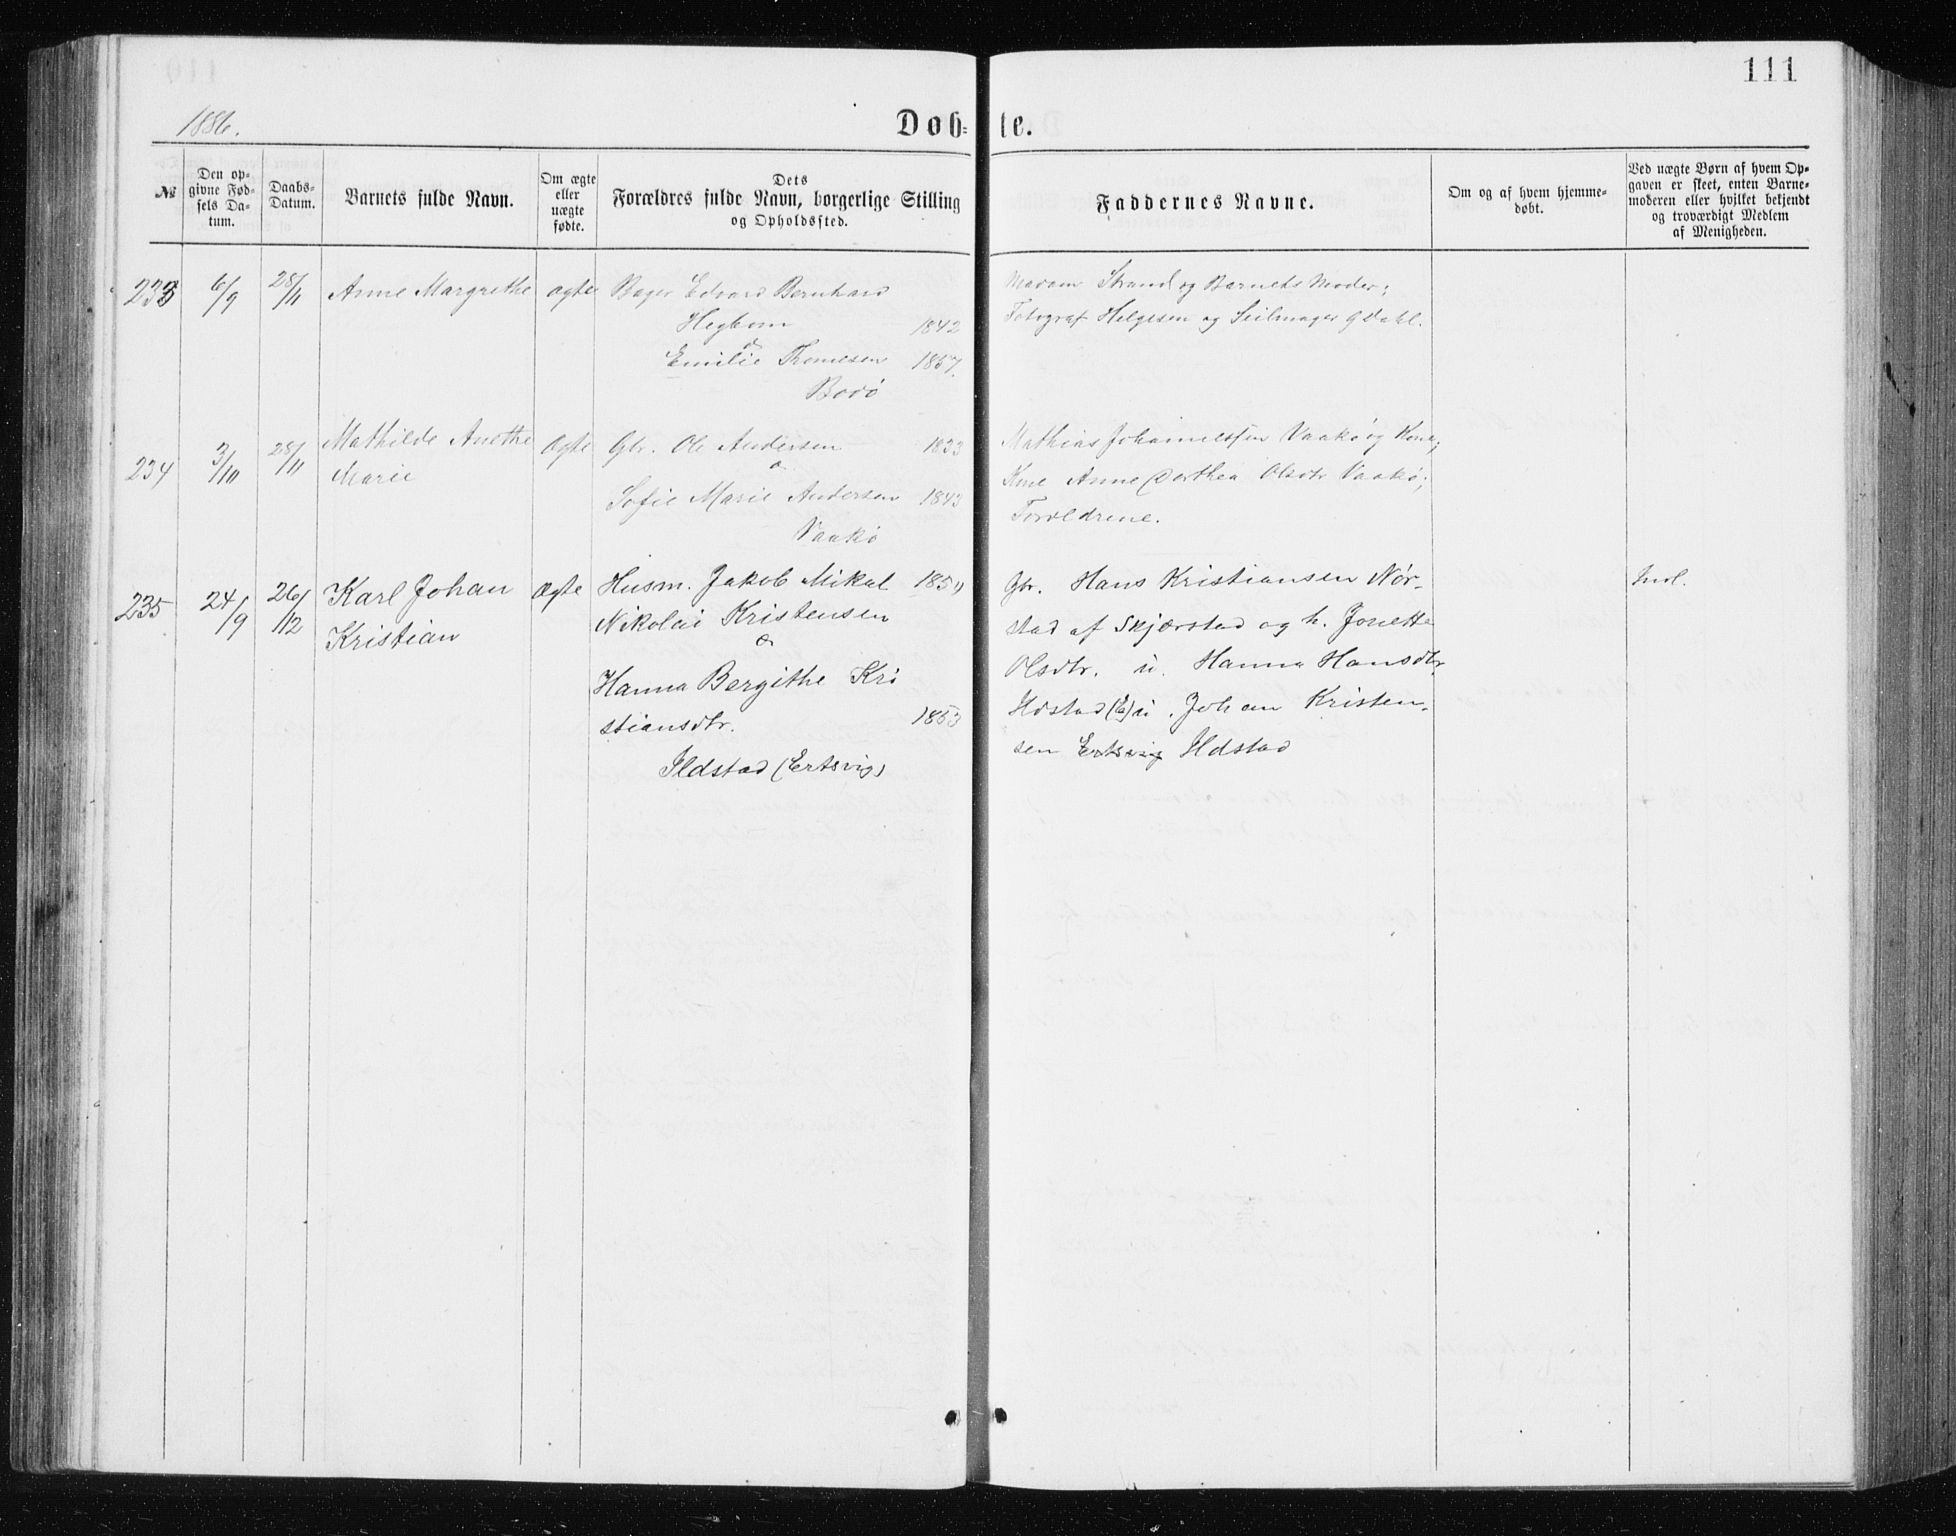 111
1886.
Døb= te.
№
Den op-
givne Fød-
sels Da-
tum.
Daabs-
Datum.
Barnets fulde Navn.
Om ægte
eller
uægte
fødte.
Dets
Forældres fulde Navn, borgerlige Stilling
og Opholdssted.
Faddernes Navne.
Om og af hvem hjemme-
døbt.
Ved uægte Børn af hvem Op-
gaven er skeet, enten Barne-
moderen eller hvilket bekjendt
og troværdigt Medlem
af Menigheden.
233 6/9 28/11 Anne Margrethe ægte Bager Edvard Bernhard
Hegbom 1842
&
Emilie Tromesen 1857.
Bodø
Madam Strand og Barnets Moder;
Fotograf Helgesen og Seilmager G Dahl.
234 3/10 28/11 Mathilde Anethe
Marie
Ægte Gbr. Ole Andersen 1833
&
Sofie Marie Andersen 1843
Vaakø
Mathias Johannessen Vaakø og Kone;
Kone Anne Dorthea Olsdtr Vaakø;
Forældrene.
235 24/9 26/12 Karl Johan
Kristian
Ægte Husm. Jakob Mikal 185
Nikolai Kristensen
&
Hanna Bergithe Kri
stiansdtr. 1853
Ildstad (Ertsvig)
Gbr. Hans Kristiansen Nør-
stad af Skjærstad og h. Jonette
Olsdtr. u. Hanna Hansdtr.
Ildstad (E) u. Johan Kristen-
sen Ertsvig Ildstad